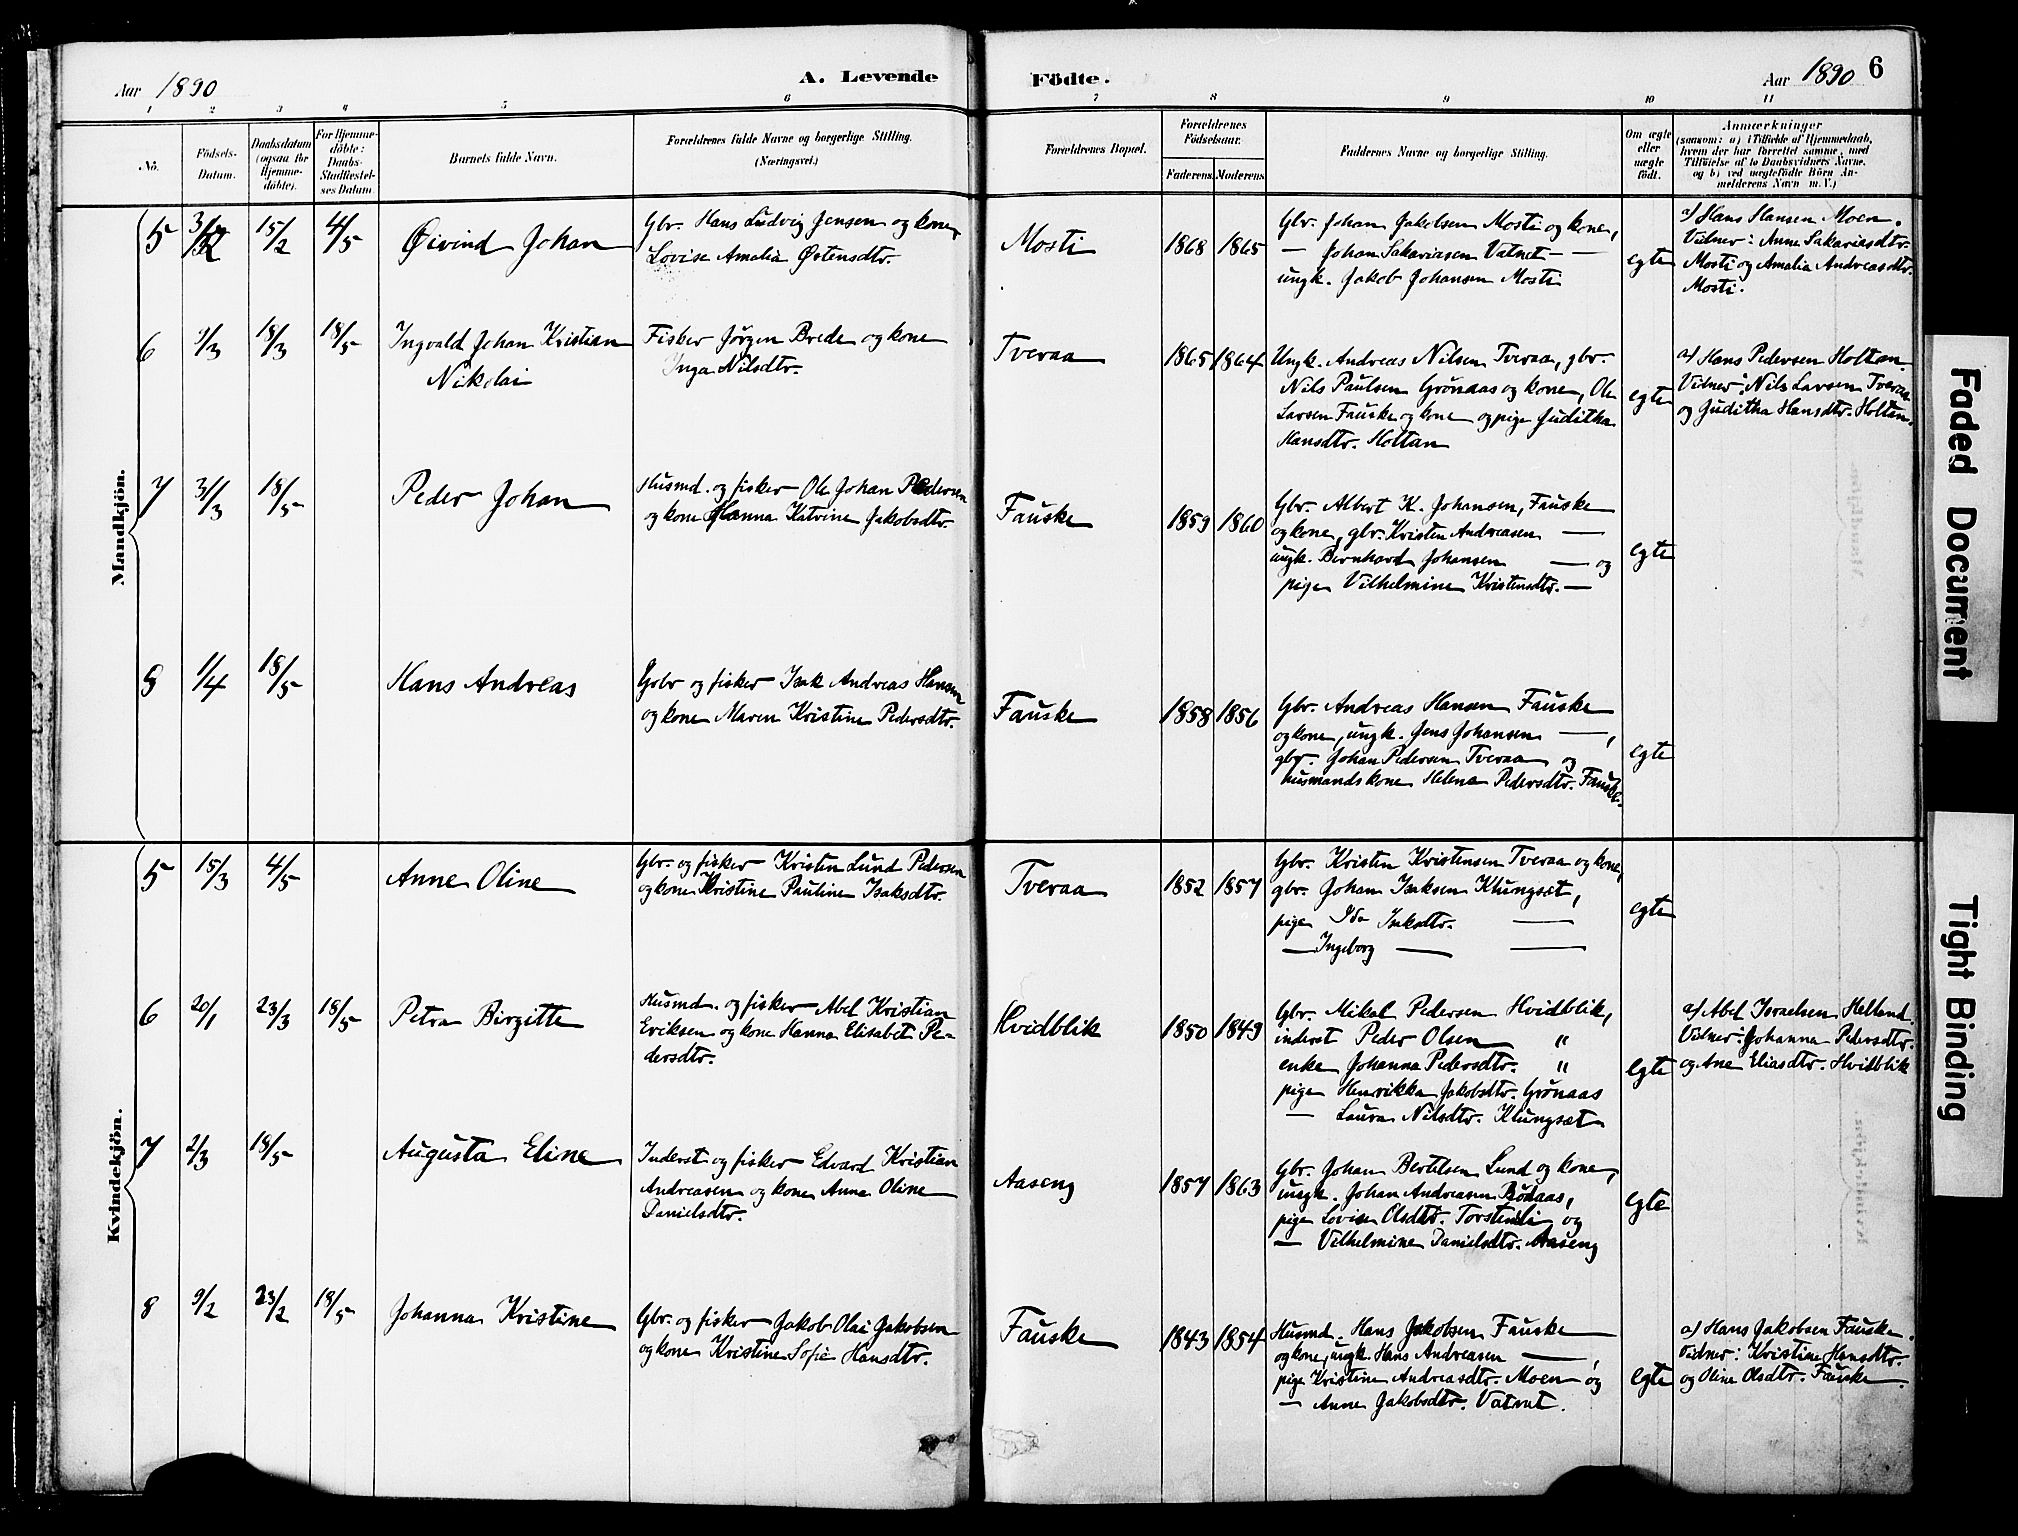 Aar 1890
A. Levende
Födte.
Aar 1890
6
1 2 3 4 5 6 7 8 9 10 11
No.
Födsels-
Datum.
Daabsdatum
(ogsaa for
Hjemme-
döbte).
For Hjemme-
döbte:
Daabs-
Stadfæstel-
ses Datum.
Barnets fulde Navn.
Forældrenes fulde Navne og borgerlige Stilling.
(Næringsvei.)
Forældrenes Bopæl.
Forældrenes
Födselsaar.
Faderens Moderens
Faddernes Navne og borgerlige Stilling.
Om ægte
eller
uægte
födt.
Anmærkninger
(saasom: a) i Tilfælde af Hjemmedaab,
hvem der har forrettet samme, med
Tilföielse af to Daabsvidners Navne,
og b) ved uægtefödte Börn An-
melderens Navn m. V.)
Mandkjön.
5 3/2 15/2 4/5
Øivind Johan
Gbr. Hans Ludvig Jensen og kone
Lovise Amalia Østensdtr.
Mosti
1868 1865
Gbr. Johan Jakobsen Mosti og kone,
— Johan Sakariasen Vatnet — —
ungk. Jakob Johansen Mosti
egte
a) Hans Hansen Moen.
Vidner: Anne Sakariasdtr.
Mosti og Amalia Andreasdtr.
Mosti.
6 9/3 18/3 18/5
Ingvald Johan Kristian
Nikolai
Fisker Jørgen Brede og kone
Inga Nilsdtr.
Tveraa
1865 1864
Ungk. Andreas Nilsen Tveraa, gbr.
Nils Paulsen Grønaas og kone, Ole
Larsen Fauske og kone og pige Juditha
Hansdtr. Holtan
egte
a) Hans Pedersen Holtan.
Vidner: Nils Larsen Tveraa
og Juditha Hansdtr. Holtan.
7 31/3 18/5
Peder Johan
Husmd. og fisker Ole Johan Pedersen
og kone Hanna Katrine Jakobsdtr.
Fauske
1859 1860
Gbr. Albert K. Johansen, Fauske
og kone, gbr. Kristen Andreasen —
ungk. Bernhard Johansen — og
pige Vilhelmine Kristensdtr. —
egte
8 1/4 18/5
Hans Andreas
Gbr og fisker Isak Andreas Hansen
og kone Maren Kristine Pedersdtr.
Fauske
1858 1856
Gbr. Andreas Hansen Fauske
og kone, ungk. Jens Johansen —,
gbr. Johan Pedersen Tveraa og
husmandskone Helena Pedersdtr. Fauske.
egte
Kvindekjön.
5 15/3 4/5
Anne Oline
Gbr. og fisker Kristen Lund Pedersen
og kone Kristine Pauline Isaksdtr.
Tveraa
1852 1857
Gbr. Kristen Kristensen Tveraa og kone,
gbr. Johan Isaksen Klungset,
pige Ida Isaksdtr. —
— Ingeborg — —
egte
6 20/1 23/3 18/5
Petra Birgitte
Husmd. og fisker Abel Kristian
Eriksen og kone Hanna Elisabet Pe-
dersdtr.
Hvidblik
1850 1849
Gbr. Mikal Pedersen Hvidblik,
inderst Peder Olsen "
enke Johanna Pedersdtr. "
pige Henrikka Jakobsdtr. Grønaas
— Laura Nilsdtr. Klungset
egte
a) Abel Israelsen Helland.
Vidner: Johanna Pedersdtr.
og Ane Eliasdtr. Hvidblik
7 2/3 18/5
Augusta Eline
Inderst og fisker Edvard Kristian
Andreasen og kone Anna Oline
Danielsdtr.
Aaseng
1857 1863
Gbr. Johan Bertelsen Lund og kone,
ungk. Johan Andreasen Rødaas,
pige Lovise Olsdtr. Torstenli og
— Vilhelmine Danielsdtr. Aaseng
egte
8 9/2 23/2 18/5
Johanna Kristine
Gbr. og fisker Jakob Olai Jakobsen
og kone Kristine Sofie Hansdtr.
Fauske
1843 1854
Husmd. Hans Jakobsen Fauske
og kone, ungk. Hans Andreasen —,
pige Kristine Andreasdtr. Moen og
— Anne Jakobsdtr. Vatnet.
egte
a) Hans Jakobsen Fauske.
Vidner: Kristine Hansdtr.
og Oline Olsdtr. Fauske.
Faded Document
Tight Binding